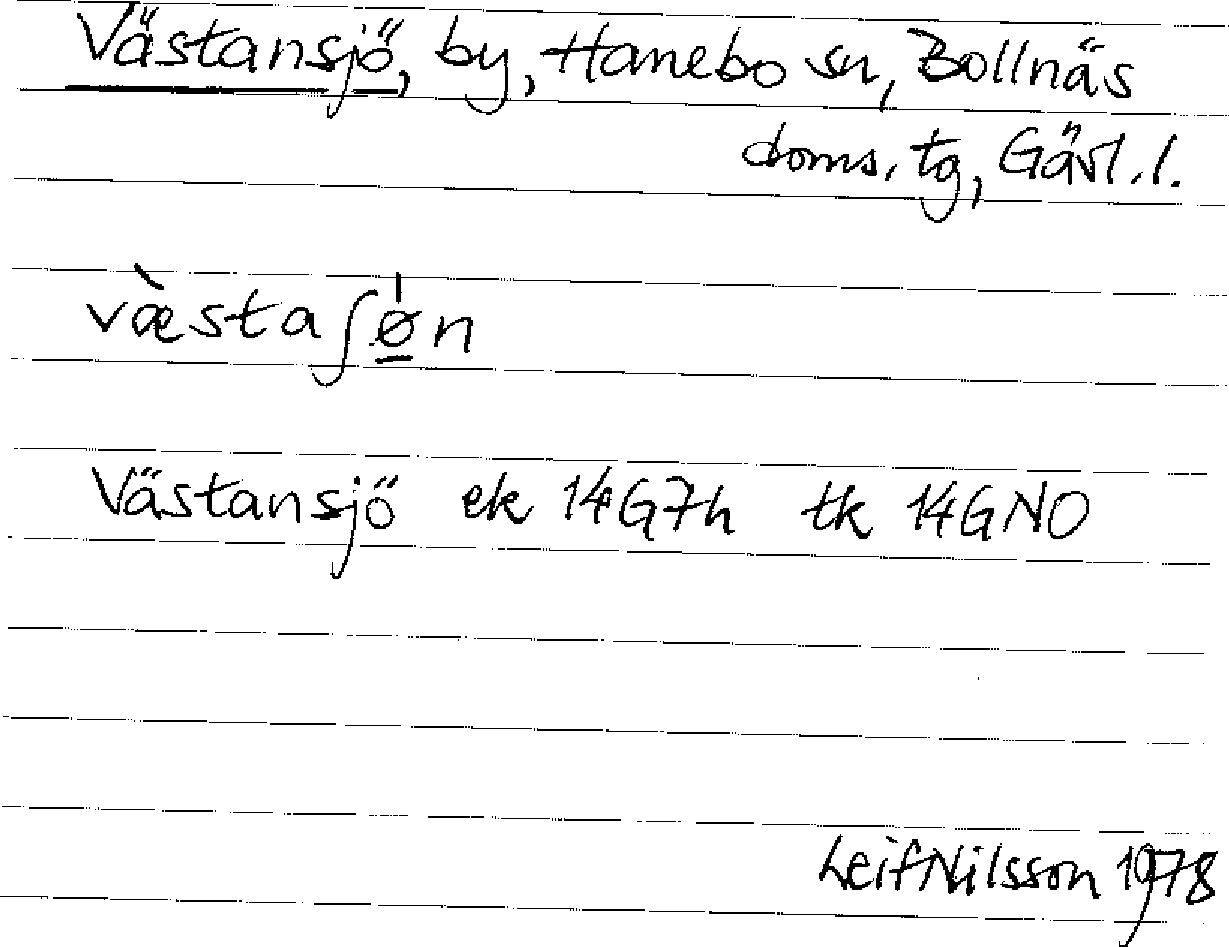 Västansjö, by, Hanebo sn, Bollnäs
doms. tg, Gävl. l.
væ̀staʃø̲̍n
Västansjö ek 14G7h tk 14GNO
Leif Nilsson 1978